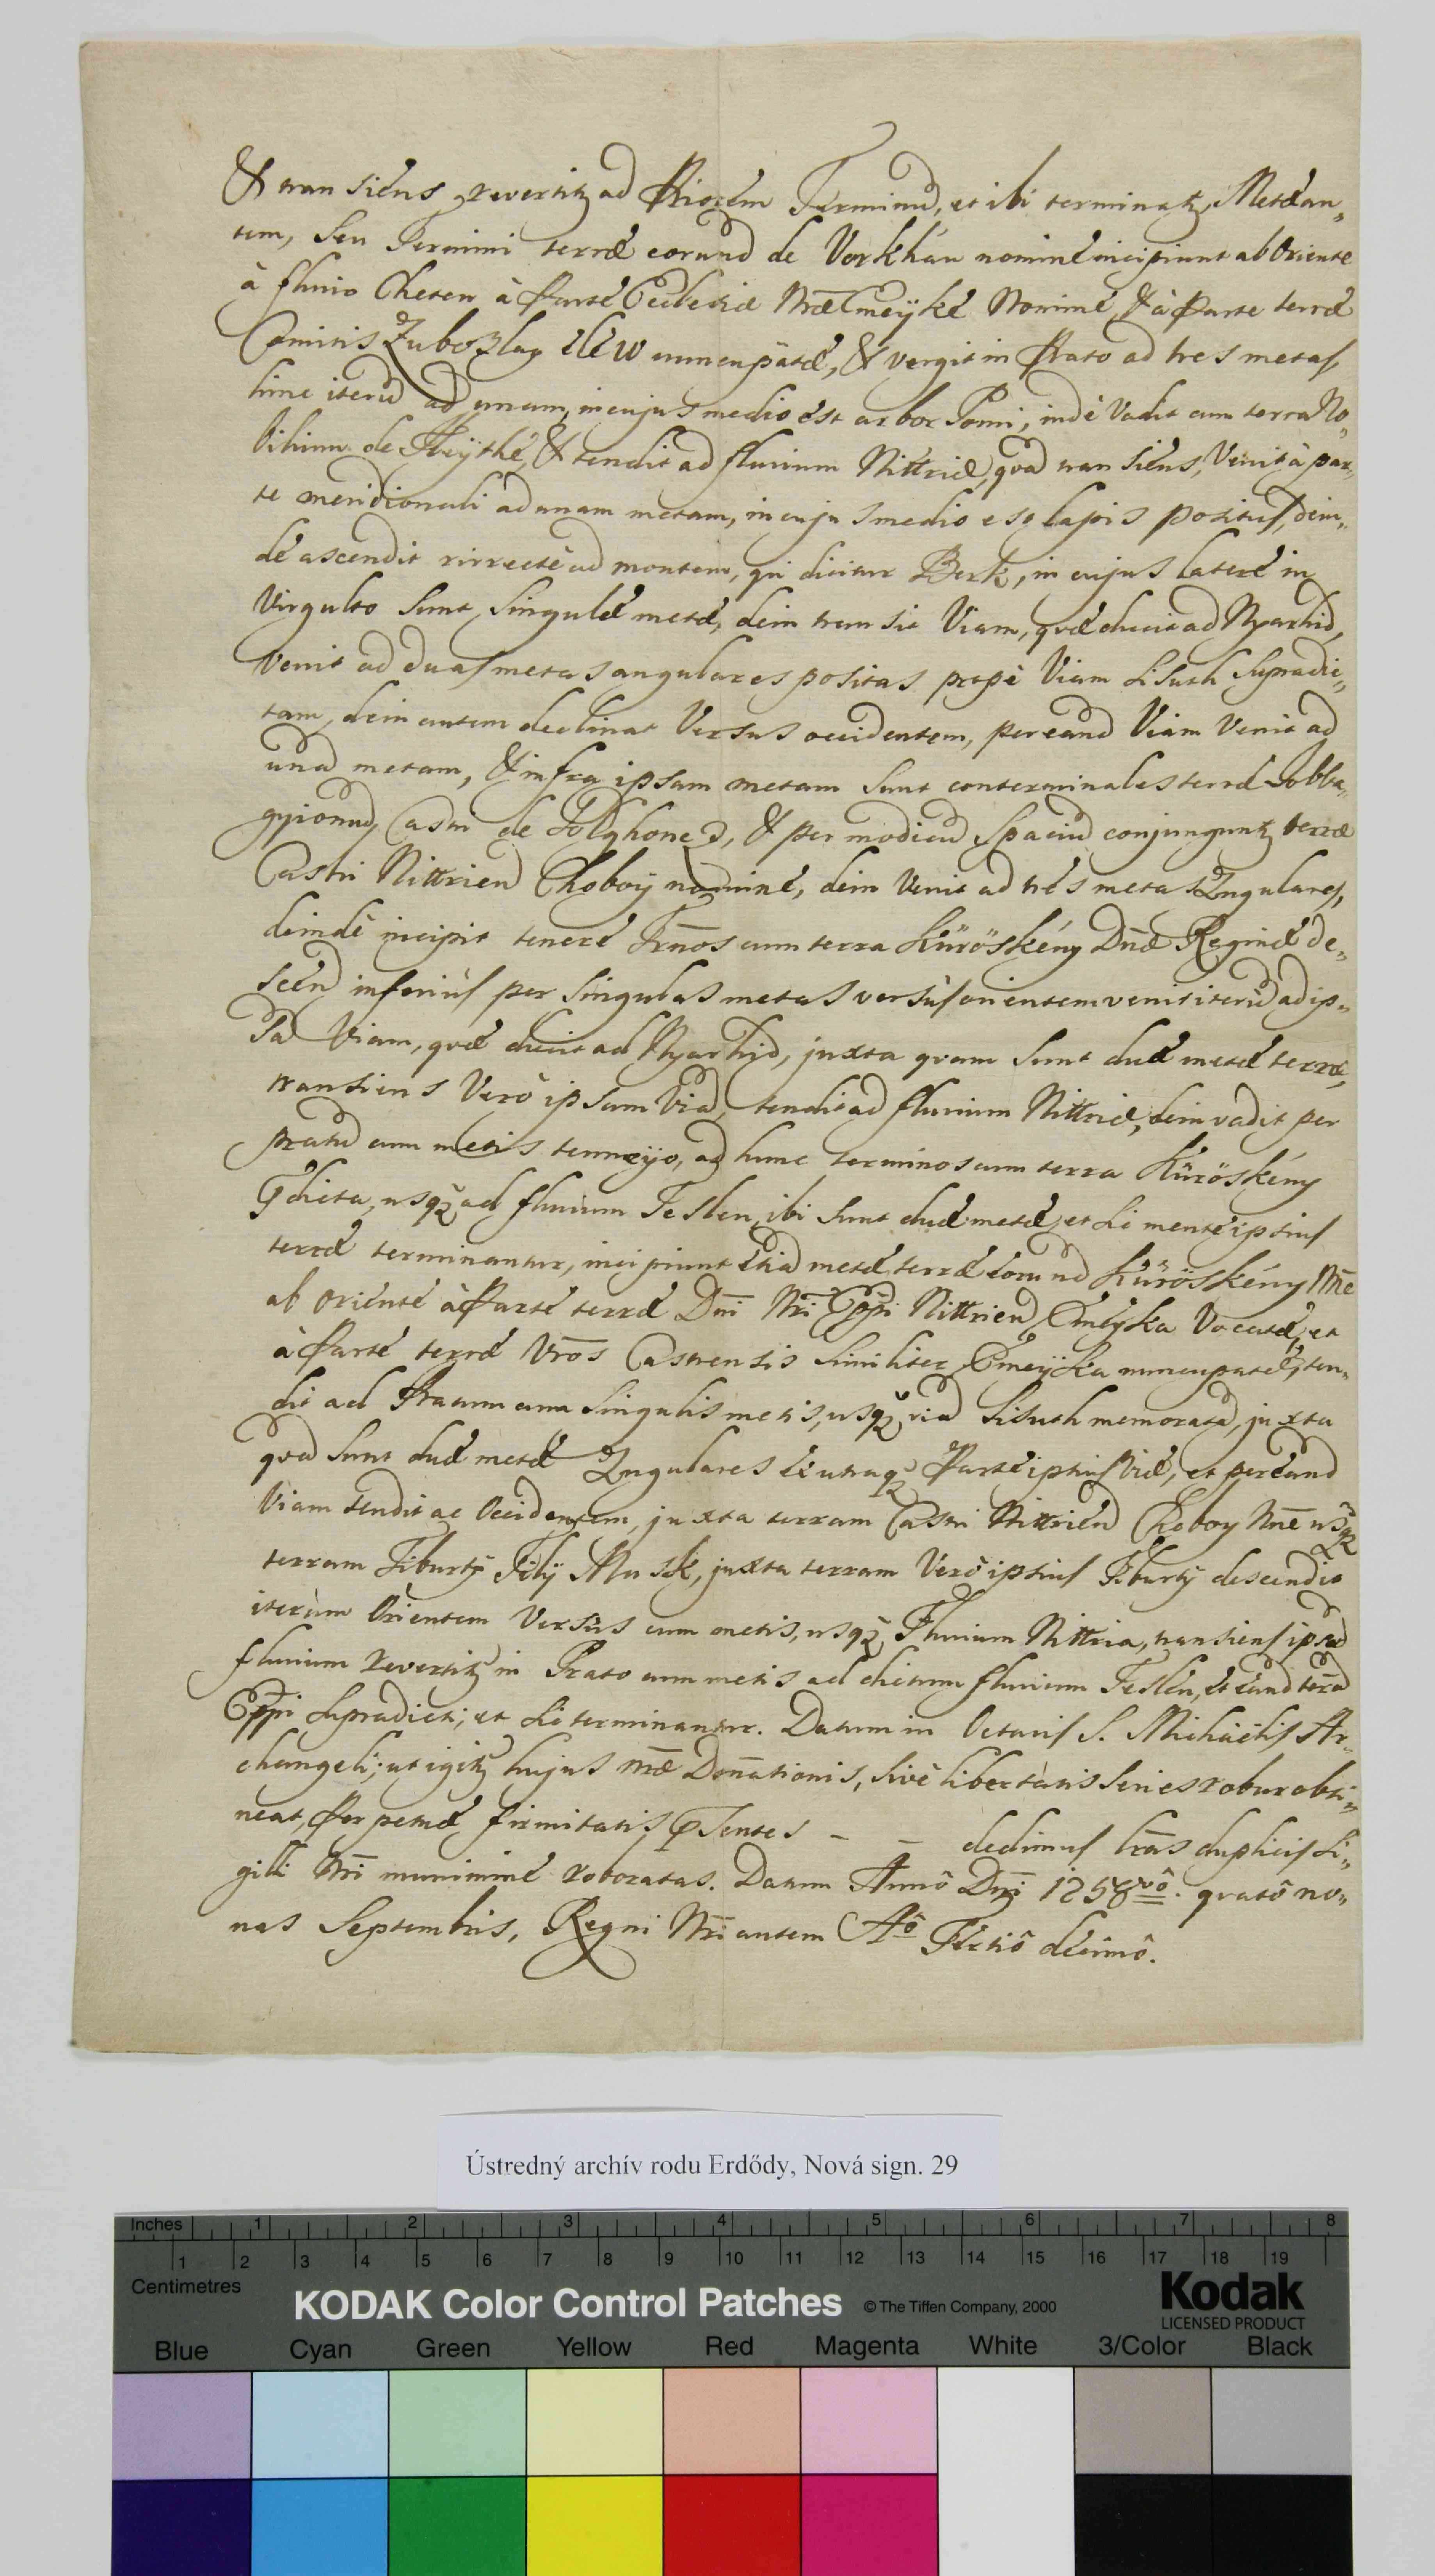 & transiens revertitꝫ ad Priorem Terminũ, et ibi terminatꝫ, Metæ au„
tem, seu Termini terræ eorund de Vorkhán nominé incipiunt ab Oriente
à fluvio Cheten à Parté Ecclesiæ Nræ Emeÿké Nominé, & à Parte terræ
Comitis Zuboszlay nuncupatæ, & vergit in Prato ad tres metas,
hinc iterũ ad unam, in cujus medio est arbor Pomi, indè Vadit cum terra No„
bilium de & tendit ad fluvium Nittriæ, qvã transiéns, Venit à par„
te meridionali ad unam metam, in cujus medio esꝫ lapis positus, dein„
dé ascendit rirrectè ad montem, qui dicitur Berk, in cujus lateré in
Virgulto sunt singulæ metæ, dein transit Viam, qvæ ducit ad Nyarhid,
Venit ad duas metas angulares positas propè Viam Lisuth supradic„
tam, dein autem declinat Versus occidentem, per eand Viam Venit ad
unã metam, & infra ipsam metam sunt conterminales terræ Jobba„
gyionũ, Castri de & per modicũ spaciũ conjunguntꝫ terræ
Castri Nittrien Choboÿ nominé, dein Venit ad trés metas Angulares,
deindè incipit teneré Trnos cum terra Kûrôskény Dnæ Reginæ de„
scén inferiùs per singulas metas versùs orientem venit iterũ ad ip„
sã Viam, qvæ ducit ad Nyarhid, juxta qvam sunt duæ metæ terræ,
transiens Verò ipsam Viã, tendit ad fluvium Nittriæ, dein vadit per
pratũ cum metis ad hunc terminos cum terra Kûrôskény
usqꝫ ad fluvium Teslen, ibi sunt duæ metæ, et sic metæ ipsius
terræ terminantur, incipiunt étiã metæ terræ eorund Kûrôskény Nñe
ab Orienté à Parté terræ Dni Nri Eppi Nittrien, Emeÿka Vocatæ, et
à Parté terræ Vrõs Castrensis similiter Emeÿka nuncupatæ, ten„
dit ad Pratum cum singulis metis, usqꝫ viã Lisuth memoratã, juxta
qvã sunt duæ metæ Angulares éx utraqꝫ Parté ipsius viæ, et per éand
Viam tendit ac Occidentem, juxta terram Castri Nittrién Choboy Nñe usqꝫ
terram Tiburtÿ Filÿ Musk, juxta terram Verò ipsius Tiburtÿ descendit
iterùm Orientem Versùs cum metis, usqꝫ Fluvium Nittria, transiens ipsũ
fluvium revertitꝫ in Prato cum metis ad dictum fluvium Teslén, ét éand terrã
Eppi supradicti; et sic terminantur. Datum in Octavis S. Michaélis Ar„
changeli; ut igitꝫ hujus nræ Donationis, sivè libertàtis series robur obti„
neat, Perpetuæ firmitatis pſentes – – dedimus lrãs duplicis si„
gilli Nri muniminé roboratas. Datum Annô Dni 1258vô. qvartô no„
nas Septembris, Regni Nri autem Aô Tértiô décimô.
Ústredný archív rodu Erdődy, Nová sign. 29
Inches 1 2 3 4 5 6 7 8
1 2 3 4 5 6 7 8 9 10 11 12 13 14 15 16 17 18 19
Centimetres
KODAK Color Control Patches © The Tiffen Company, 2000
Kodak
LICENSED PRODUCT
Blue Cyan Green Yellow Red Magenta White 3/Color Black